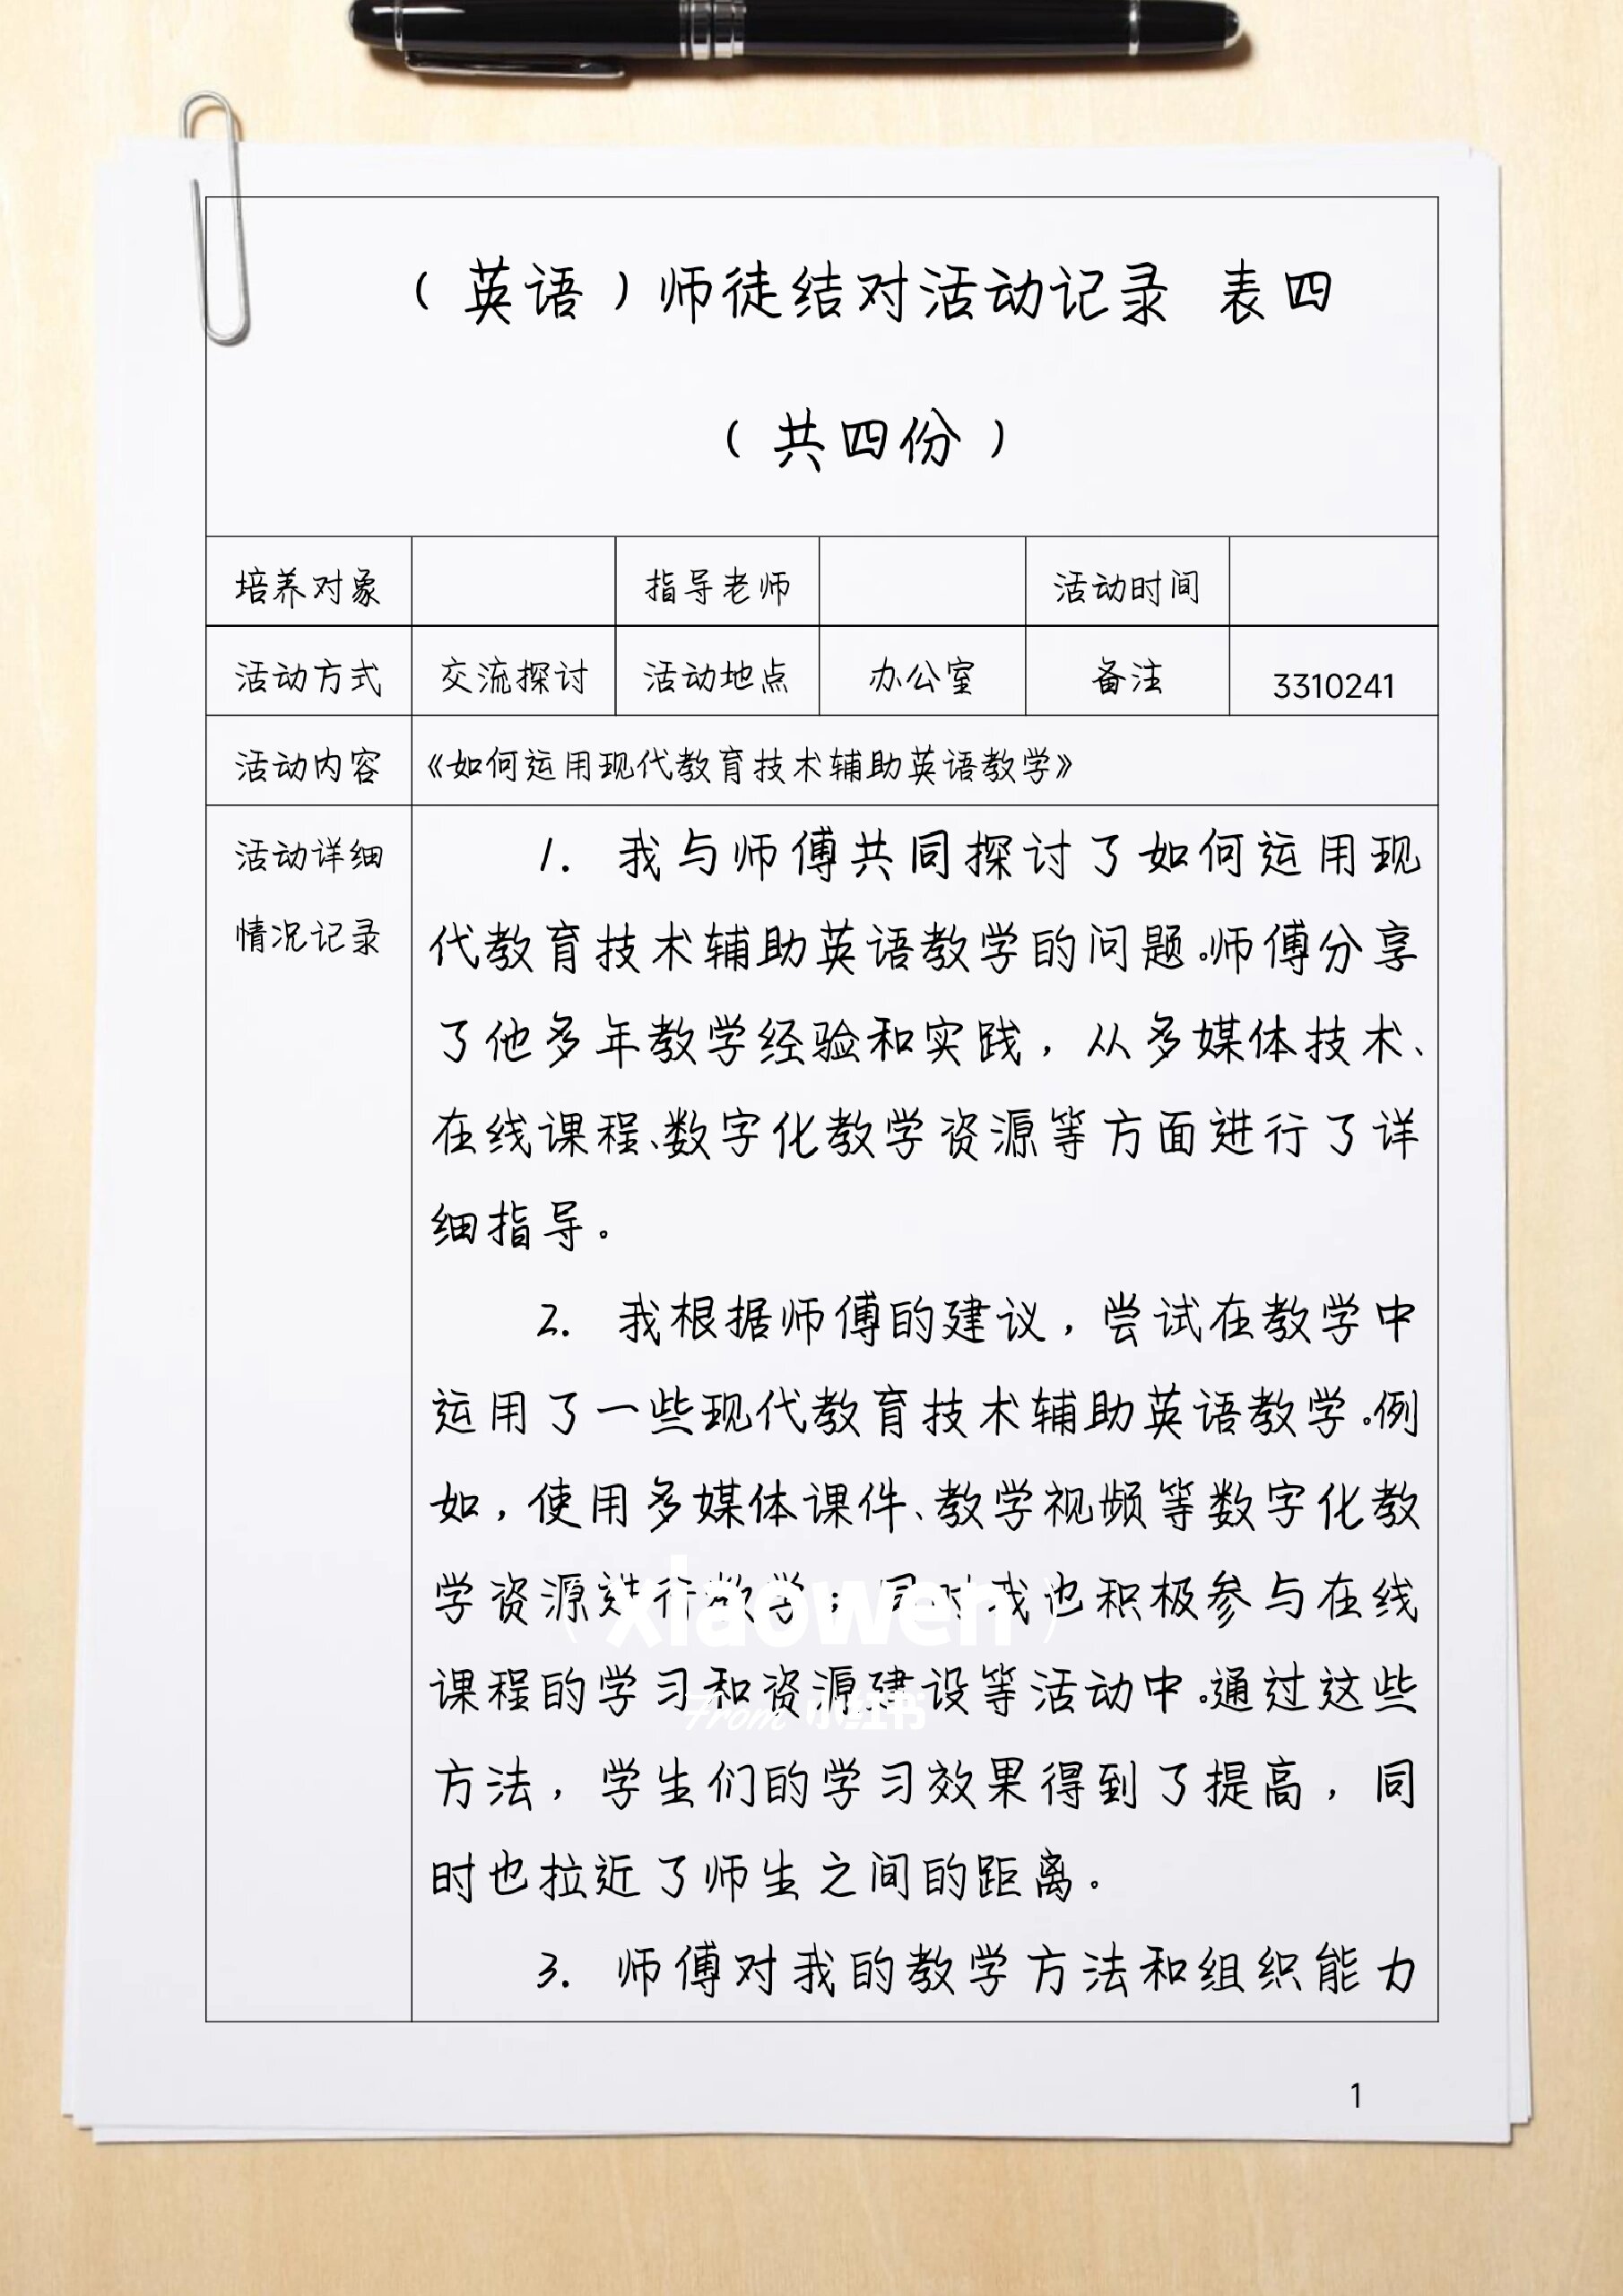 （英语）师徒结对活动记录 表四
（共四份）
培养对象 指导老师 活动时间
活动方式 交流探讨 活动地点 办公室 备注 3310241
活动内容 《如何运用现代教育技术辅助英语教学》
活动详细
情况记录
1. 我与师傅共同探讨了如何运用现
代教育技术辅助英语教学的问题。师傅分享
了他多年教学经验和实践，从多媒体技术、
在线课程、数字化教学资源等方面进行了详
细指导。
2. 我根据师傅的建议，尝试在教学中
运用了一些现代教育技术辅助英语教学。例
如，使用多媒体课件、教学视频等数字化教
学资源进行教学；同时我也积极参与在线
课程的学习和资源建设等活动中。通过这些
方法，学生们的学习效果得到了提高，同
时也拉近了师生之间的距离。
3. 师傅对我的教学方法和组织能力
（xiaowen）
From 小红书
1